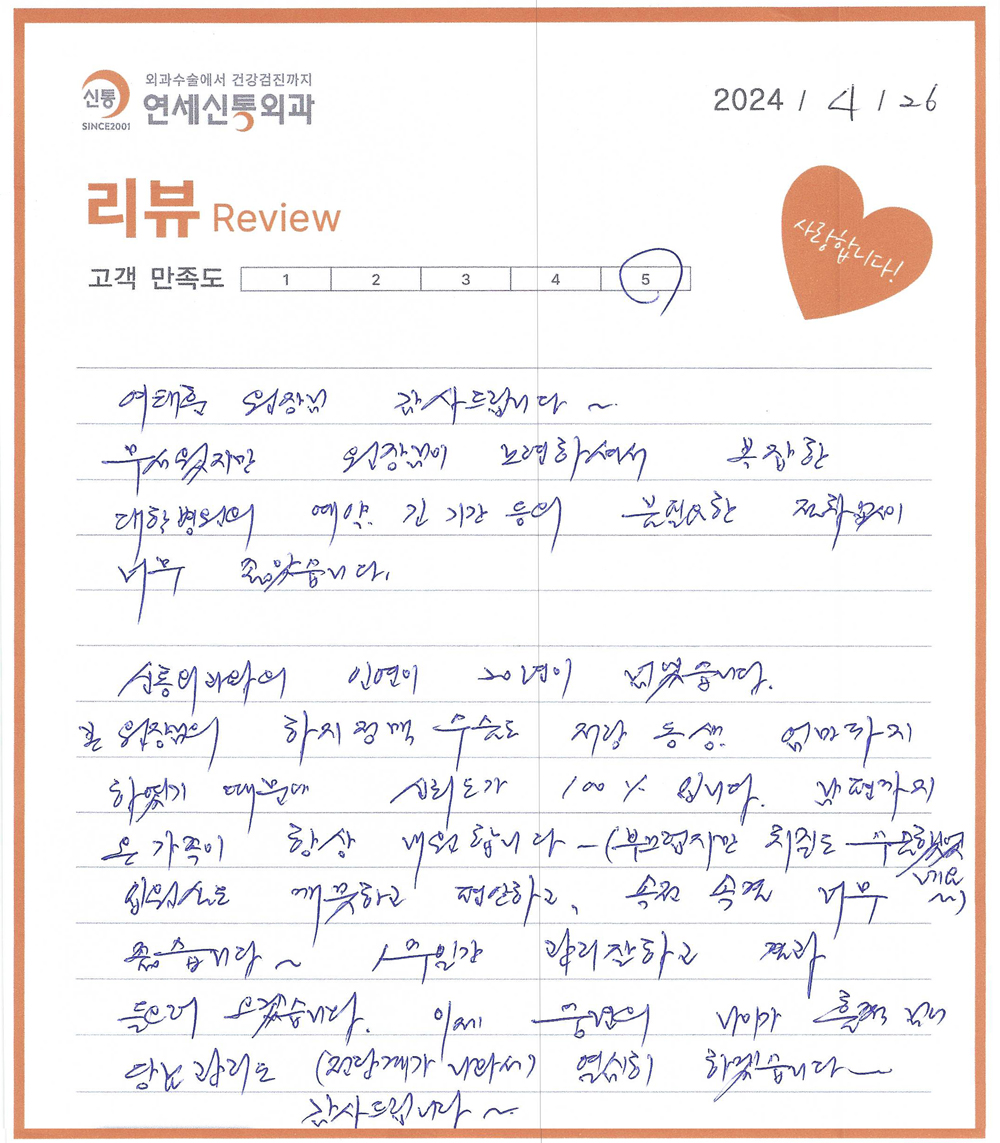 신통
SINCE2001
외과수술에서 건강검진까지
연세신통외과
2024 / 4 / 26
리뷰 Review
사랑합니다!
고객 만족도 1 2 3 4 5
여태흠 원장님 감사드립니다 ~
무서웠지만 원장님이 노련하셔서 복잡한
대학병원의 예약. 긴 기간 등의 불필요한 절차없이
너무 좋았습니다.
신통외과와의 인연이 20년이 넘었습니다.
원장님의 하지정맥 수술도 저랑 동생. 엄마까지
하였기 때문에 신뢰도가 100% 입니다. 남편까지
온가족이 항상 내원합니다 ~ (부끄럽지만 치질도 수술했었
네요~)
입원실도 깨끗하고 편안하고, 속전 속결 너무
좋습니다 ~ 식일간 관리잘하고 결과
들으러 오겠습니다. 이제 중년의 나이가 훌쩍 넘어
당뇨관리도 (전단계가 나와서) 열심히 하겠습니다 ~
감사드립니다 ~